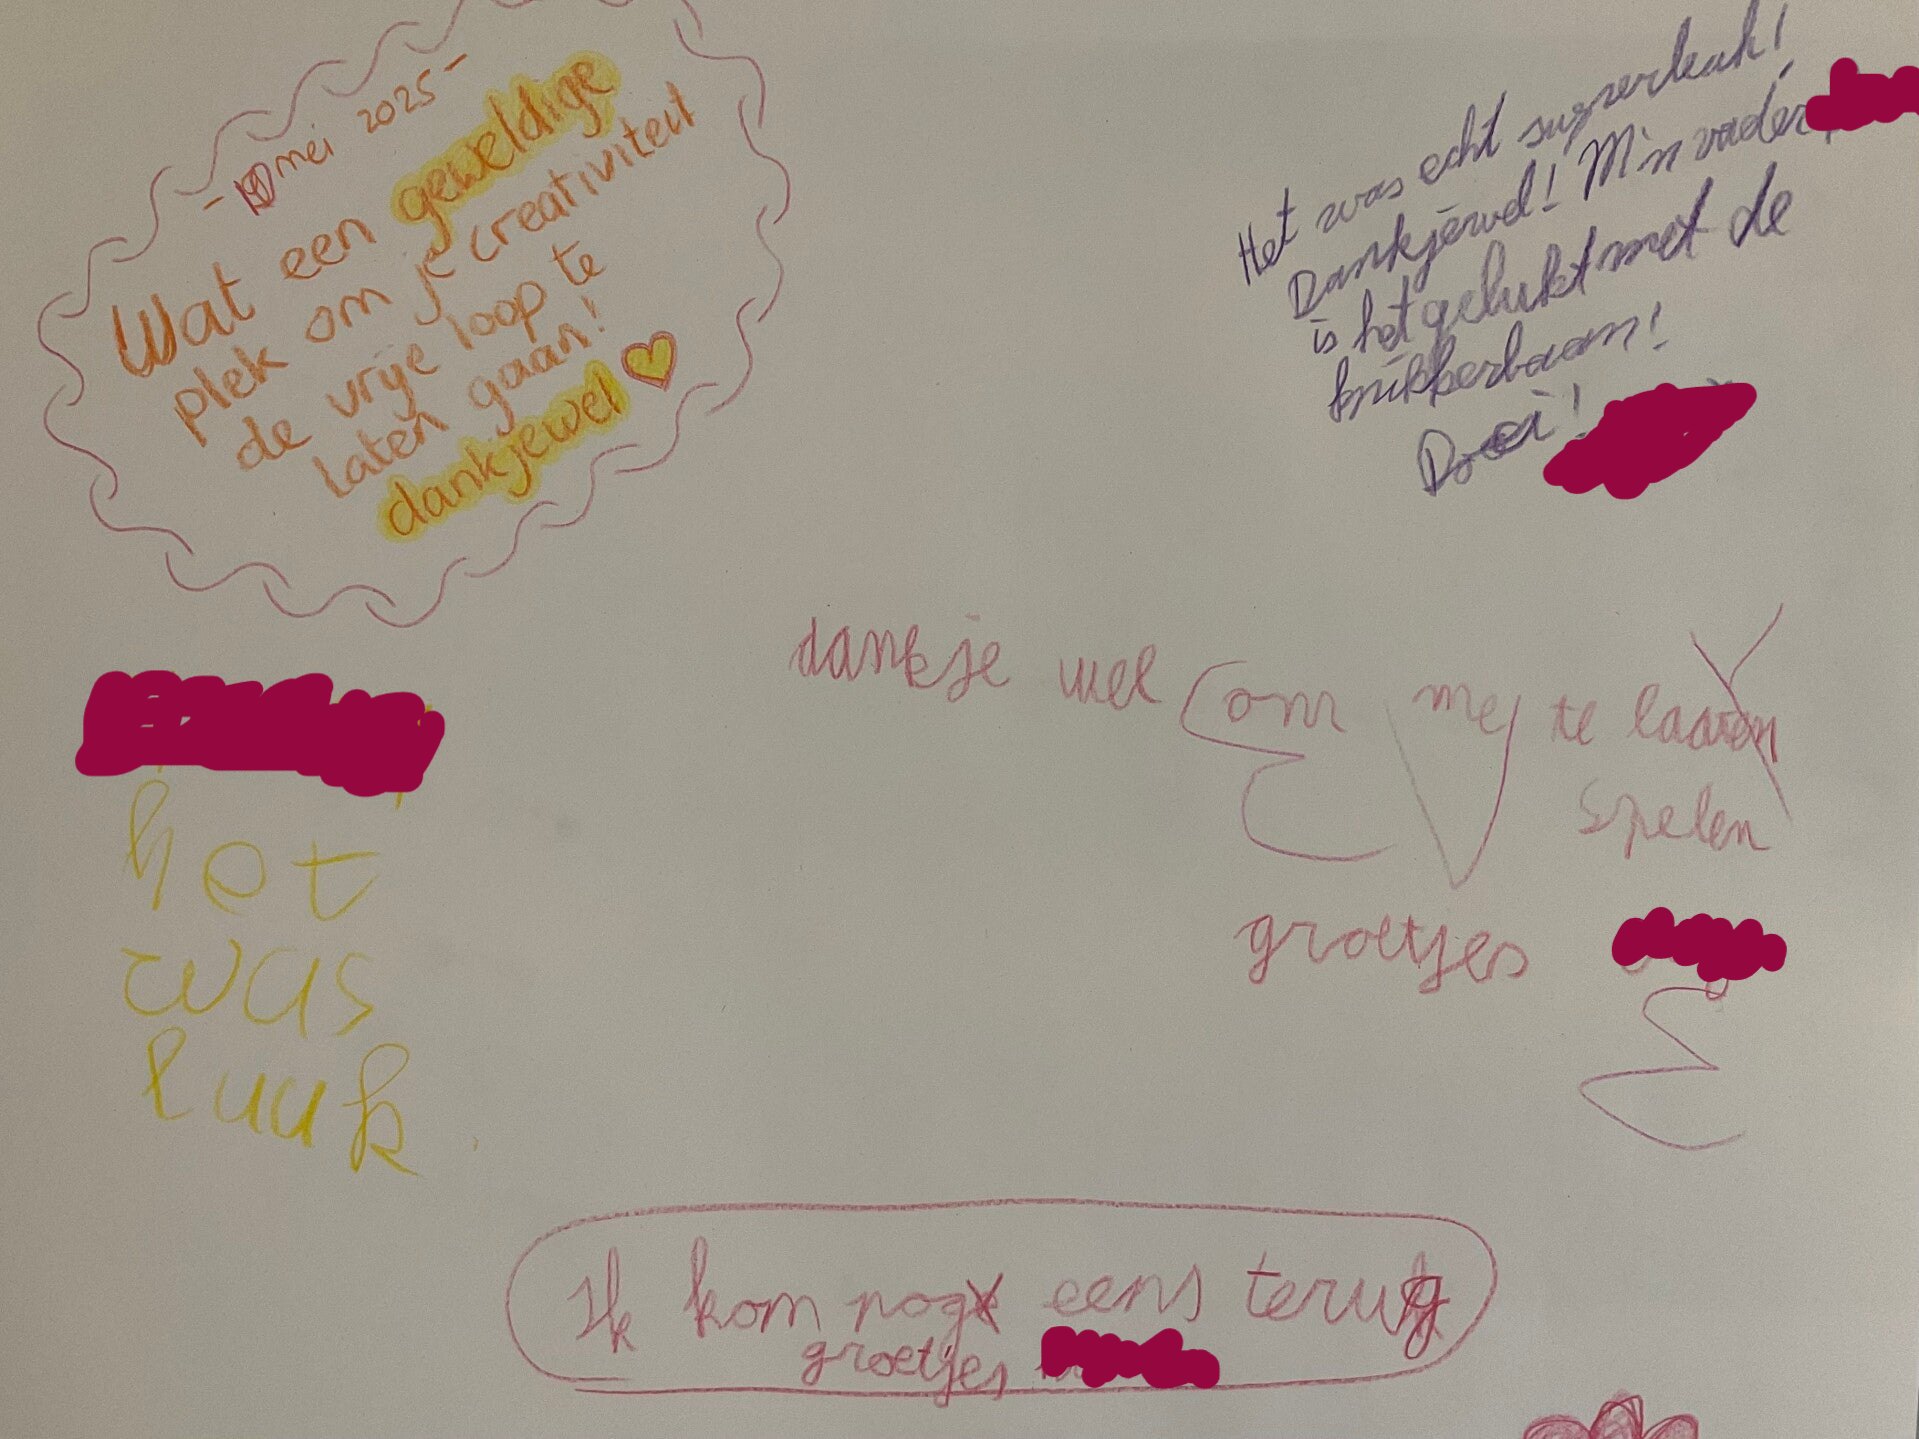 mei 2025
Wat een geweldige
plek om je creativiteit
de vrije loop te
laten gaan!
dankjewel
Het was echt superleuk!
Dankjewel! M'n vader
is het gelukt met de
knikkerbaan!
Doei!
dankje wel om me te laaten
spelen
groetjes
het
was
luuk
Ik kom nog eens terug
groetjes